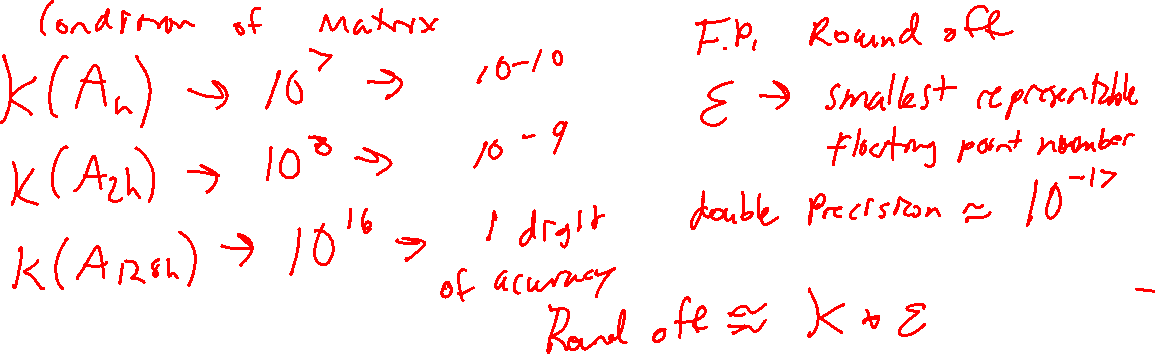 Condition of Matrix
K(A_h) → 10^7 → 10-10
K(A_2h) → 10^8 → 10-9
K(A_128h) → 10^16 → 1 digit
of accuracy
F.P. Round off
ε → smallest representable
floating point number
double precision ≈ 10^-17
Round off ≈ K * ε